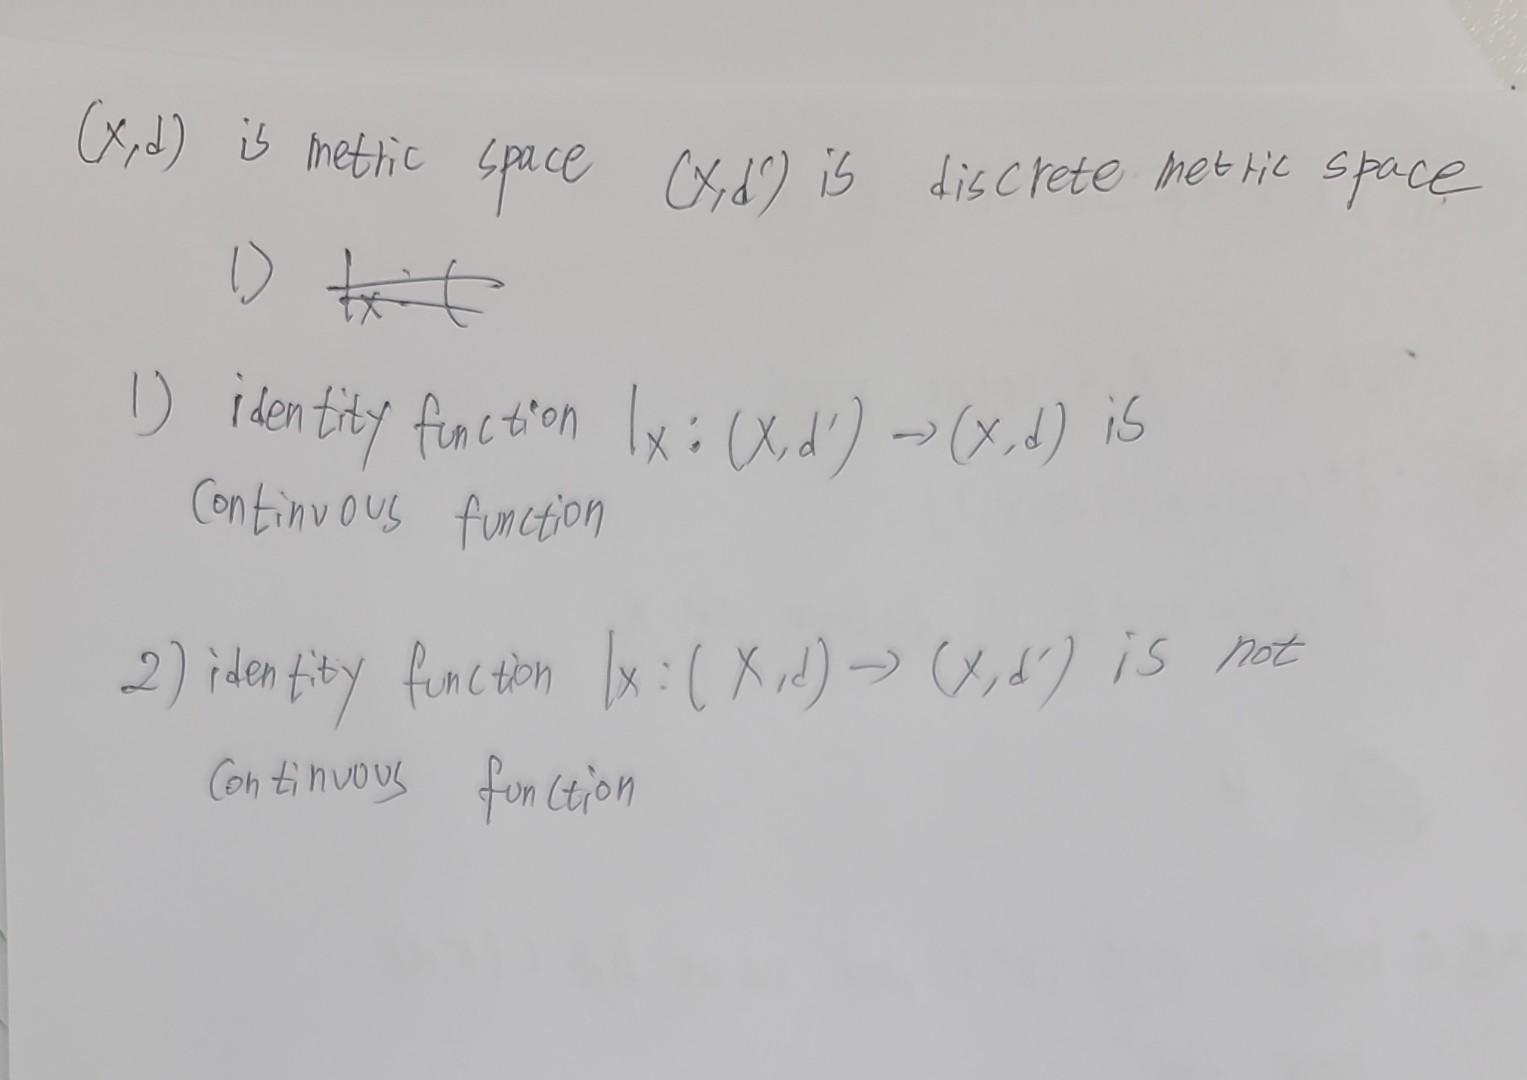 (X,d) is metric space (X,d') is discrete metric space
1)
1) identity function 1x : (X,d') → (X,d) is
continuous function
2) identity function 1x : (X,d) → (X,d') is not
continuous function